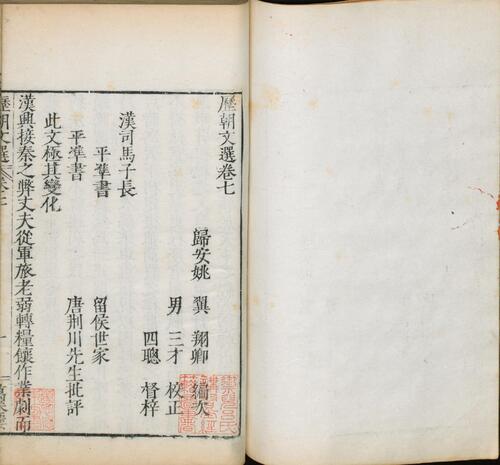 歷朝文選卷七
歸安姚翼翔卿編次
男三才校正
四聰督梓
漢司馬子長
平準書
留侯世家
平準書
唐荆川先生批評
此文極其變化
漢興接秦之弊丈夫從軍旅老弱轉糧饟作業劇而
歷朝文選